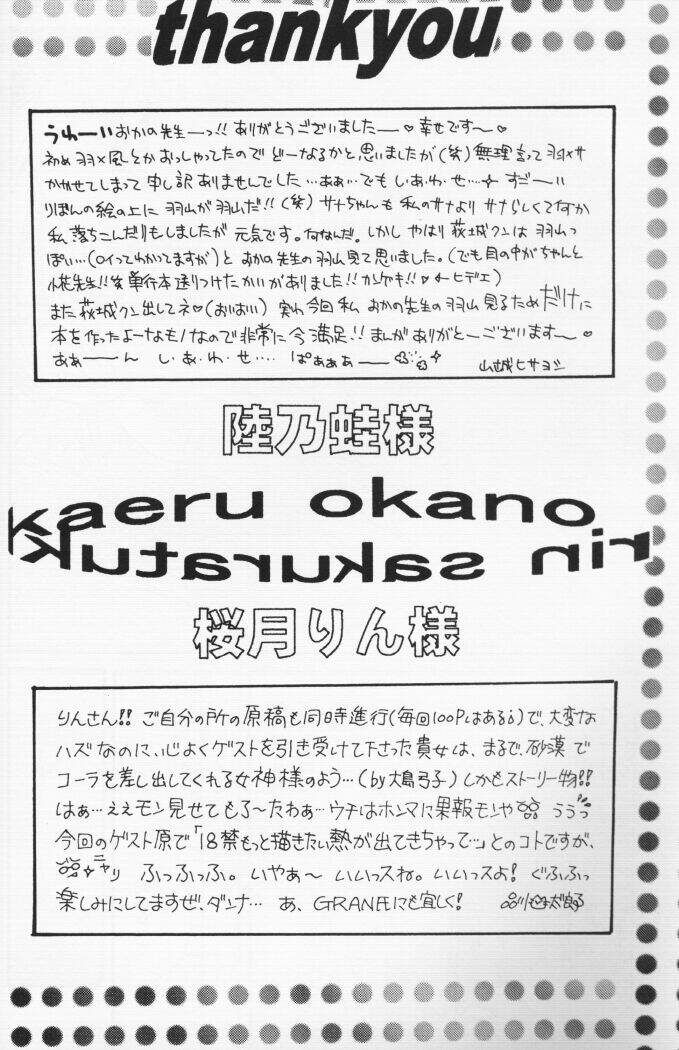 thankyou
うわーいおかの先生ーっ!!ありがとうございましたー♡幸せです〜♡
初め羽×風とかおっしゃってたのでどーなるかと思いましたが(笑)無理言って羽×サ
かかせてしまって申し訳ありませんでした…あぁ…でもしあ・わ・せ…✧すごーい
りぼんの絵の上に羽山が羽山だ!!(笑)サナちゃんも私のサナよりサナらしくてなか
私落ちこんだりもしましたが元気です。何なんだ。しかしやはり荻城クンは羽山っ
ぽい…(ロイってわかってますが)とおかの先生の羽山見て思いました。(でも目の中がちゃんと
先生!!単行本送りつけたかいがありました!!カンゲキ!!♡←ヒデェ)
また荻城クン出してネ♡(おいおい)実わ今回私おかの先生の羽山見るためだけに
本を作ったよーなもんなので非常に今満足!!まんがありがとーございます〜♡
あぁーーんし・あ・わ・せ….ぱぁぁぁー 山城ヒサヨシ
陸乃蛙様
kaeru okano
rin sakuratuki
桜月りん様
りんさん!!ご自分の所の原稿も同時進行(毎回100Pはあるi)で、大変な
ハズなのに、心よくゲストを引き受けて下さった貴女は、まるで、砂漠で
コーラを差し出してくれる女神様のよう…(by大島弓子)しかもストーリー物!!
はぁ…ええモン見せてもろ〜たわぁ…ウチはホンマに果報モンや ううっ
今回のゲスト原で「18禁もっと描きたい熱が出てきちゃって…」とのコトですが、
ニヤリ ふっふっふ。いやぁ〜いいっスね。いいっスよ!ぐふふっ
楽しみにしてますぜ、ダンナ… あ、GRAN氏にも宜しく!